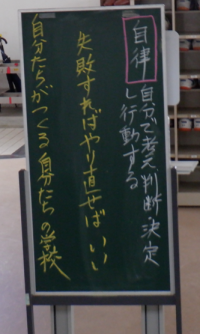 自律
自分で考え判断・決定
し行動する
失敗すればやり直せば いい
自分たちがつくる自分たちの学校